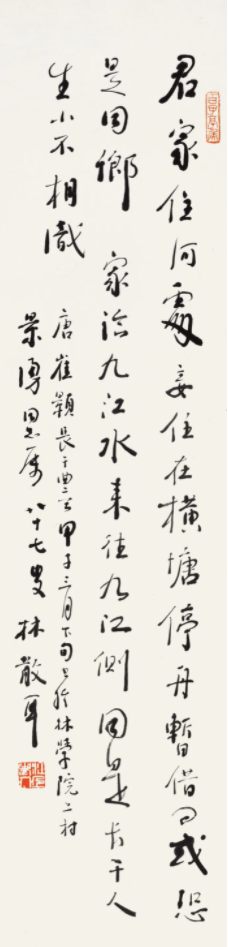 君家住何處妾住在橫塘停舟暫借問或恐
是同鄉 家臨九江水來往九江側同是長干人
生小不相識
唐崔顥長干曲二首甲子三月下旬書於林學院二村
景濤同志屬 八十七叟 林散耳